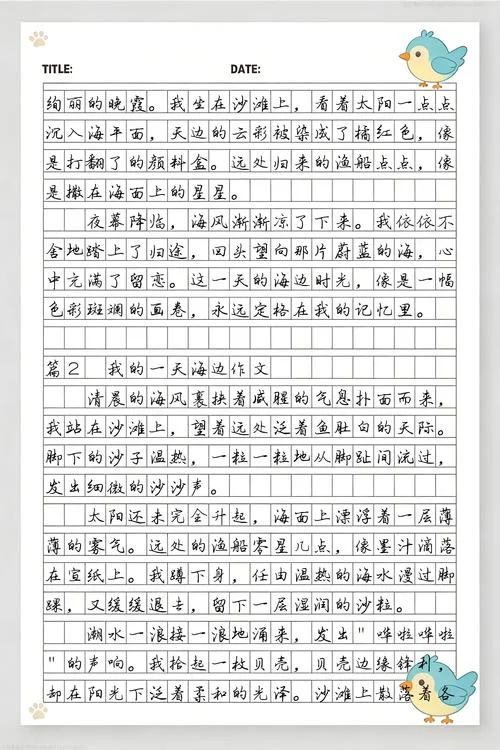 TITLE: DATE:
绚丽的晚霞。我坐在沙滩上，看着太阳一点点
沉入海平面，天边的云彩被染成了橘红色，像
是打翻了的颜料盒。远处归来的渔船点点，像
是撒在海面上的星星。
夜幕降临，海风渐渐凉了下来。我依依不
舍地踏上了归途，回头望向那片蔚蓝的海，心
中充满了留恋。这一天的海边时光，像是一幅
色彩斑斓的画卷，永远定格在我的记忆里。
篇2 我的一天海边作文
清晨的海风裹挟着咸腥的气息扑面而来，
我站在沙滩上，望着远处泛着鱼肚白的天际。
脚下的沙子温热，一粒一粒地从脚趾间流过，
发出细微的沙沙声。
太阳还未完全升起，海面上漂浮着一层薄
薄的雾气。远处的渔船零星几点，像墨汁滴落
在宣纸上。我蹲下身，任由温热的海水漫过脚
踝，又缓缓退去，留下一层湿润的沙粒。
潮水一浪接一浪地涌来，发出"哗啦哗啦
"的声响。我拾起一枚贝壳，贝壳边缘锋利，
却在阳光下泛着柔和的光泽。沙滩上散落着各